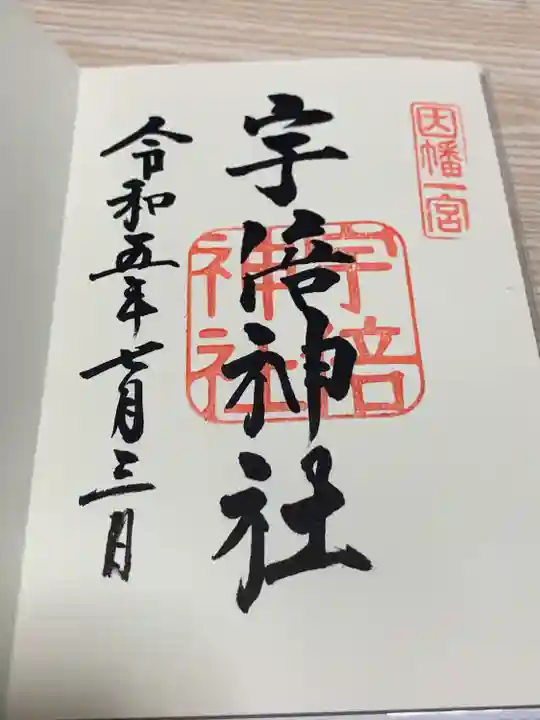 因幡一宮
宇倍神社
宇倍
神社
令和五年七月三日